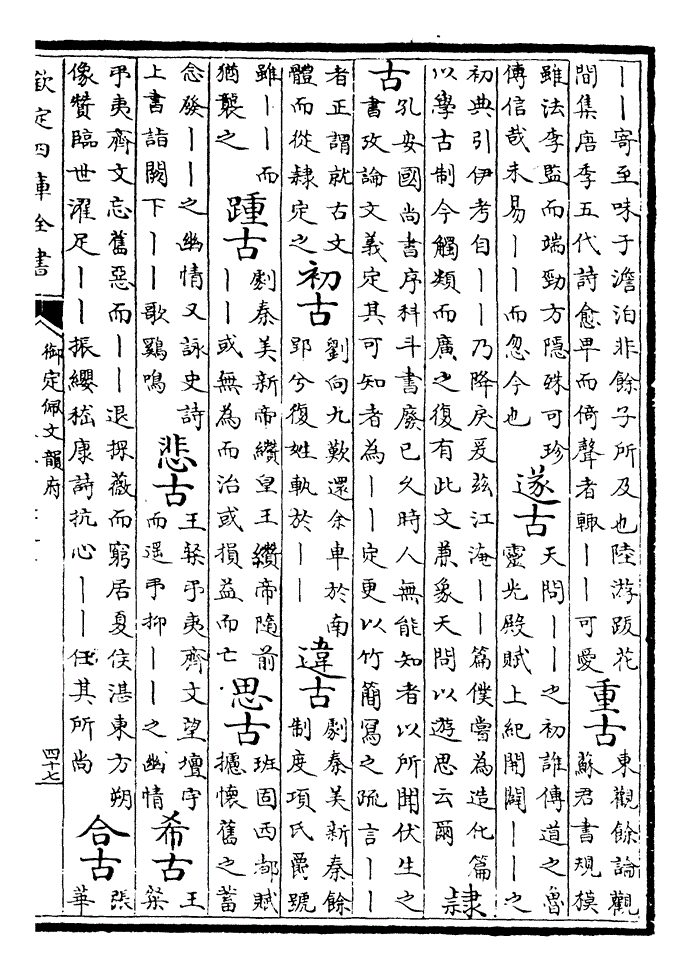 ——寄至味于澹泊非餘子所及也陸游跋花
間集唐季五代詩愈卑而倚聲者輒——可愛
重古
東觀餘論觀
蘇君書規模
雖法李監而端勁方隱殊可珍
傳信哉未易——而忽今也
遂古
天問——之初誰傳道之魯
靈光殿賦上紀開闢——之
初典引伊考自——乃降戾爰兹江淹——篇僕嘗為造化篇
以學古制今觸類而廣之復有此文兼象天問以遊思云爾
隸
古
孔安國尚書序科斗書廢已久時人無能知者以所聞伏生之
書攷論文義定其可知者為——定更以竹簡寫之疏言——
者正謂就古文
體而從隸定之
初古
劉向九歎還余車於南
郢兮復姓軌於——
違古
劇秦美新秦餘
制度項氏爵號
雖——而
猶襲之
踵古
劇秦美新帝纘皇王纘帝隨前
——或無為而治或損益而亡
思古
班固西都賦
攄懷舊之蓄
念發——之幽情又詠史詩
上書詣闕下——歌鷄鳴
悲古
王粲弔夷齊文望壇宇
而遥弔抑——之幽情
希古
王
粲
弔夷齊文忘舊惡而——退採薇而窮居夏侯湛東方朔
像贊臨世濯足——振纓嵇康詩抗心——任其所尚
合古
張
華
欽定四庫全書
御定佩文韻府
四十七